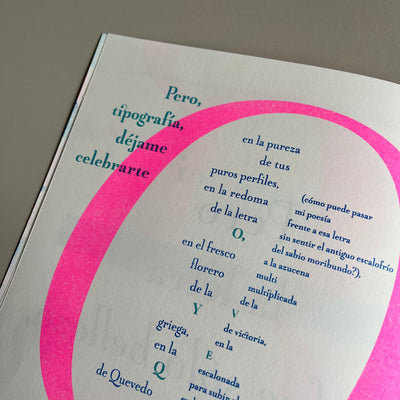 Pero,
tipografía,
déjame
celebrarte
en la pureza
de tus
puros perfiles,
en la redoma
de la letra
O,
en el fresco
florero
de la
Y
griega,
en la
Q
de Quevedo
(cómo puede pasar
mi poesía
frente a esa letra
sin sentir el antiguo escalofrío
del sabio moribundo?),
a la azucena
multi
multiplicada
de la
V
de victoria,
en la
E
escalonada
para subir